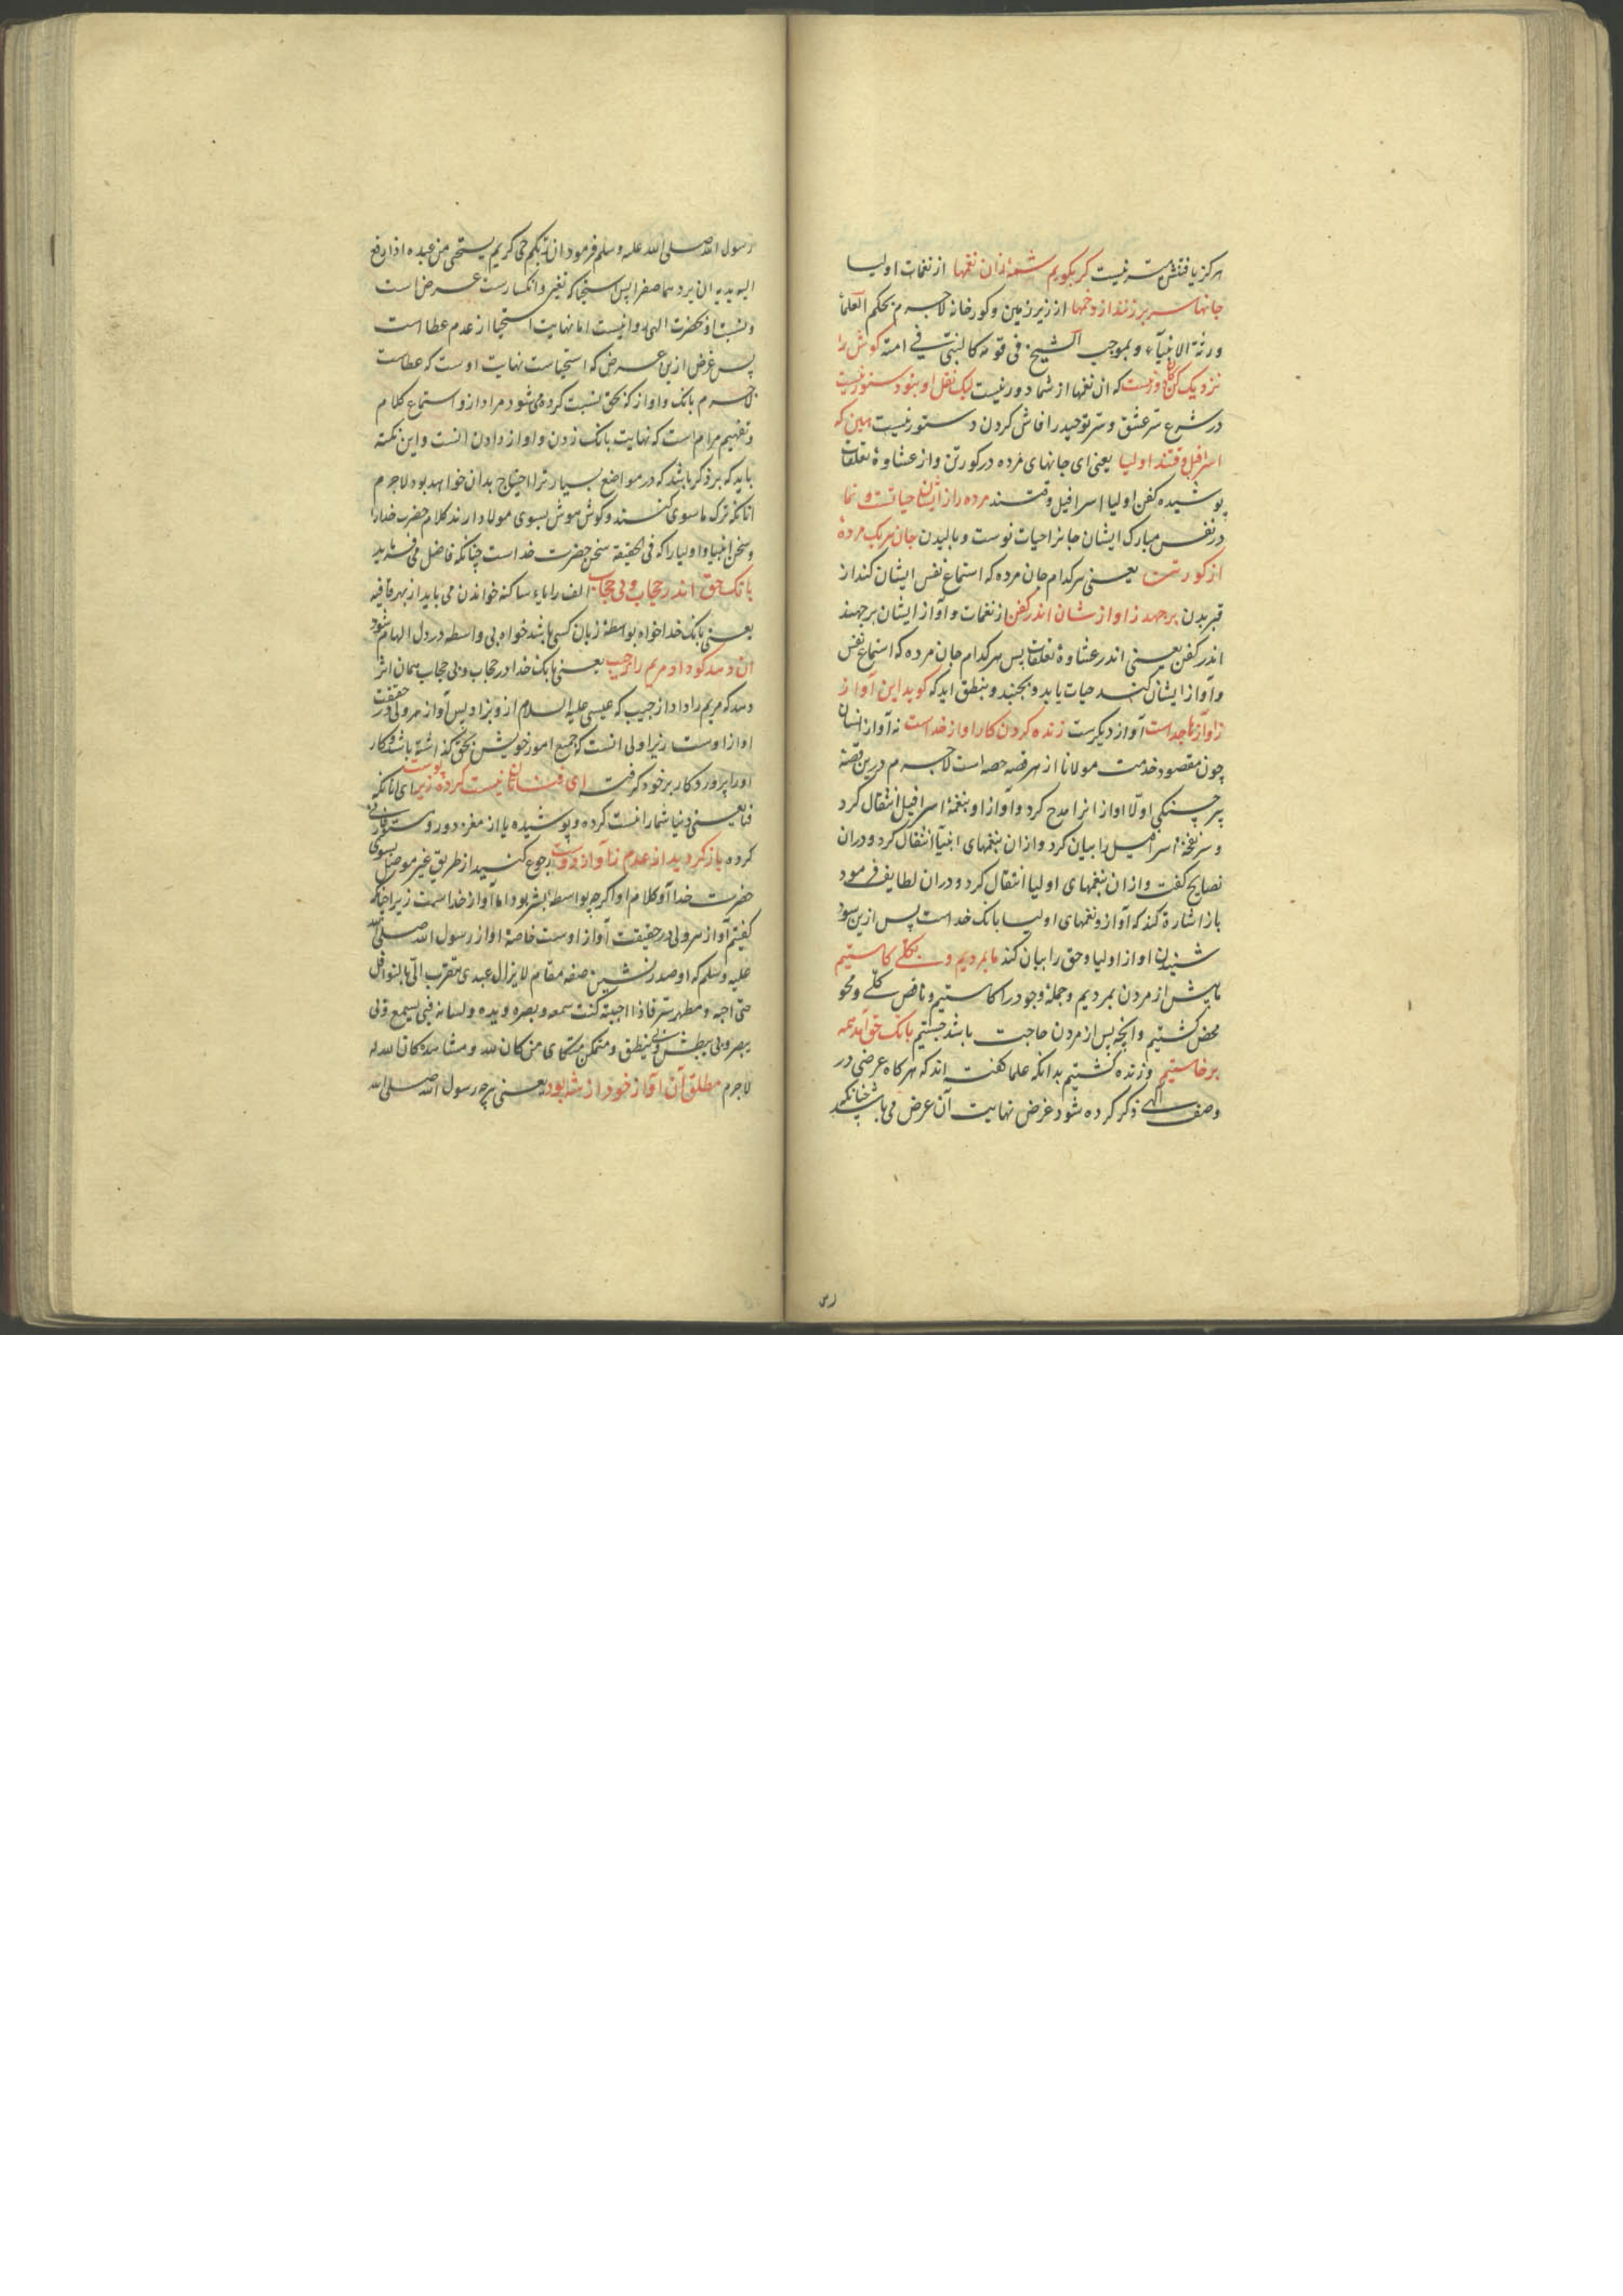 هرکز یافتنش میسر نیست کر بکویم شمهٔ زان نغمها از نغمات اولیا
جانها سر بر زنند از دخمها از زیر زمین و کورخانه لاجرم بحکم العلمأ
ورثة الانبیآء و بموجب الشیخ فی قومه کالنبی فے امته کوش را
نزدیک کن کان دور نیست که ان نغمها از شما دور نیست لیک نقل او بتو دستور نیست
در شرع سر عشق و سر توحید را فاش کردن دستور نیست هین که
اسرافیل وقتند اولیا یعنی ای جانهای مرده در کور تن و از غشاوهٔ تعلقات
پوشیده کفن اولیا اسرافیل وقتند مرده را زایشان حیاتست و نما
در نفس مبارک ایشان جانرا حیات نوست و بالیدن جان هر یک مردهٔ
از کور تن یعنی هر کدام جان مرده که استماع نفس ایشان کند از
قبر بدن برجهد ز اواز شان اندر کفن از نغمات و آواز ایشان برجهند
اندر کفن یعنی اندر غشاوهٔ تعلقات پس هر کدام جان مرده که استماع نفس
و آواز ایشان کند حیات یابد و بجنبد و بنطق اید که کوید این آواز
ز آوازها جداست آواز دیکرست زنده کردن کار اواز خداست نه آواز انسان
چون مقصود خدمت مولانا از هر قصه حصه است لاجرم درین قصهٔ
پیر چنکی اولا اواز انرا مدح کرد و آواز او بنغمهٔ اسرافیل انتقال کرد
و سر نفخهٔ اسرافیل را بیان کرد و ازان بنغمهای انبیآ انتقال کرد و دران
نصایح کفت و ازان بنغمهای اولیا انتقال کرد و دران لطایف فرمود
باز اشارة کند که آواز و نغمهای اولیا بانک خداست پس ازین سود
شنیدن اواز اولیا و حق را بیان کند ما بمردیم و بکلے کاستیم
ما پیش از مردن بمردیم و جملهٔ وجود را کاستیم و ناقص کلے و محو
محض کشتیم و انچه پس از مردن حاجت باشد جستیم بانک حق آمد همه
برخاستیم و زنده کشتیم بدانکه علما کفته اند که هر کاه عرضی در
وصف الهے ذکر کرده شود غرض نهایت آن عرض می باشد چنانکه
رسول الله صلی الله علیه وسلم فرمود ان ربکم حی کریم یستحیی من عبده اذا رفع
الیه یدیه ان یردهما صفرا پس استحیا که تغیر و انکسارست عرض است
و نسبت او بحضرت الهی روا نیست اما نهایت استحیا از عدم عطا است
پس غرض ازین عرض که استحیاست نهایت اوست که عطاست
لاجرم بانک و اواز که بحق نسبت کرده می شود مراد ازو استماع کلام
و تفهیم مرام است که نهایت بانک زدن و اواز دادن انست و این نکته
باید که بر ذکر باشد که در مواضع بسیار ترا احتیاج بدان خواهد بود لاجرم
انانکه ترک ماسوی کنند و کوش هوش بسوی مولا دارند کلام حضرت خدا را
و سخن انبیا و اولیا را که فی الحقیقة سخن حضرت خداست چنانکه فاضل می فرماید
بانک حق اندر حجاب و بی حجاب الف را یاء ساکنه خواندن می باید از بهر قافیه
یعنی بانک خدا خواه بواسطهٔ زبان کسی باشد خواه بی واسطه در دل الهام شود
ان دهد کو داد مریم را ز جیب یعنی بانک خدا در حجاب و بی حجاب همان اثر
دهد که مریم را داد از جیب که عیسی علیه السلام ازو بزاد پس آواز هر ولی در حقیقت
اواز اوست زیرا ولی انست که جمیع امور خویش بحق کذاشته باشد و کار
اورا پروردکار بر خود کرفته ای فنا تان نیست کرده زیر پوست ای انانکه
فنا یعنی دنیا شما را نیست کرده و پوشیده یا از مغز دور و
کرده باز کردید از عدم ز آواز دوست رجوع کنید از طریق غیر موصل بسوی
حضرت خدا و کلام او اکرچه بواسطهٔ بشر بود اما آواز خداست زیرا چنانکه
کفتیم آواز هر ولی در حقیقت آواز اوست خاصهٔ اواز رسول الله صلی الله
علیه وسلم که او صدر نشین صفهٔ مقام لا یزال عبدی یتقرب الی بالنوافل
حتی احبه و مظهر سر فاذا احببته کنت سمعه و بصره و یده و لسانه فبی یسمع و بی
یبصر و بی یبطش و بی ینطق و متمکن من کان لله و مشاهد کان الله له
لاجرم مطلق آن آواز خود از شه بود یعنی هرچه رسول الله صلی الله